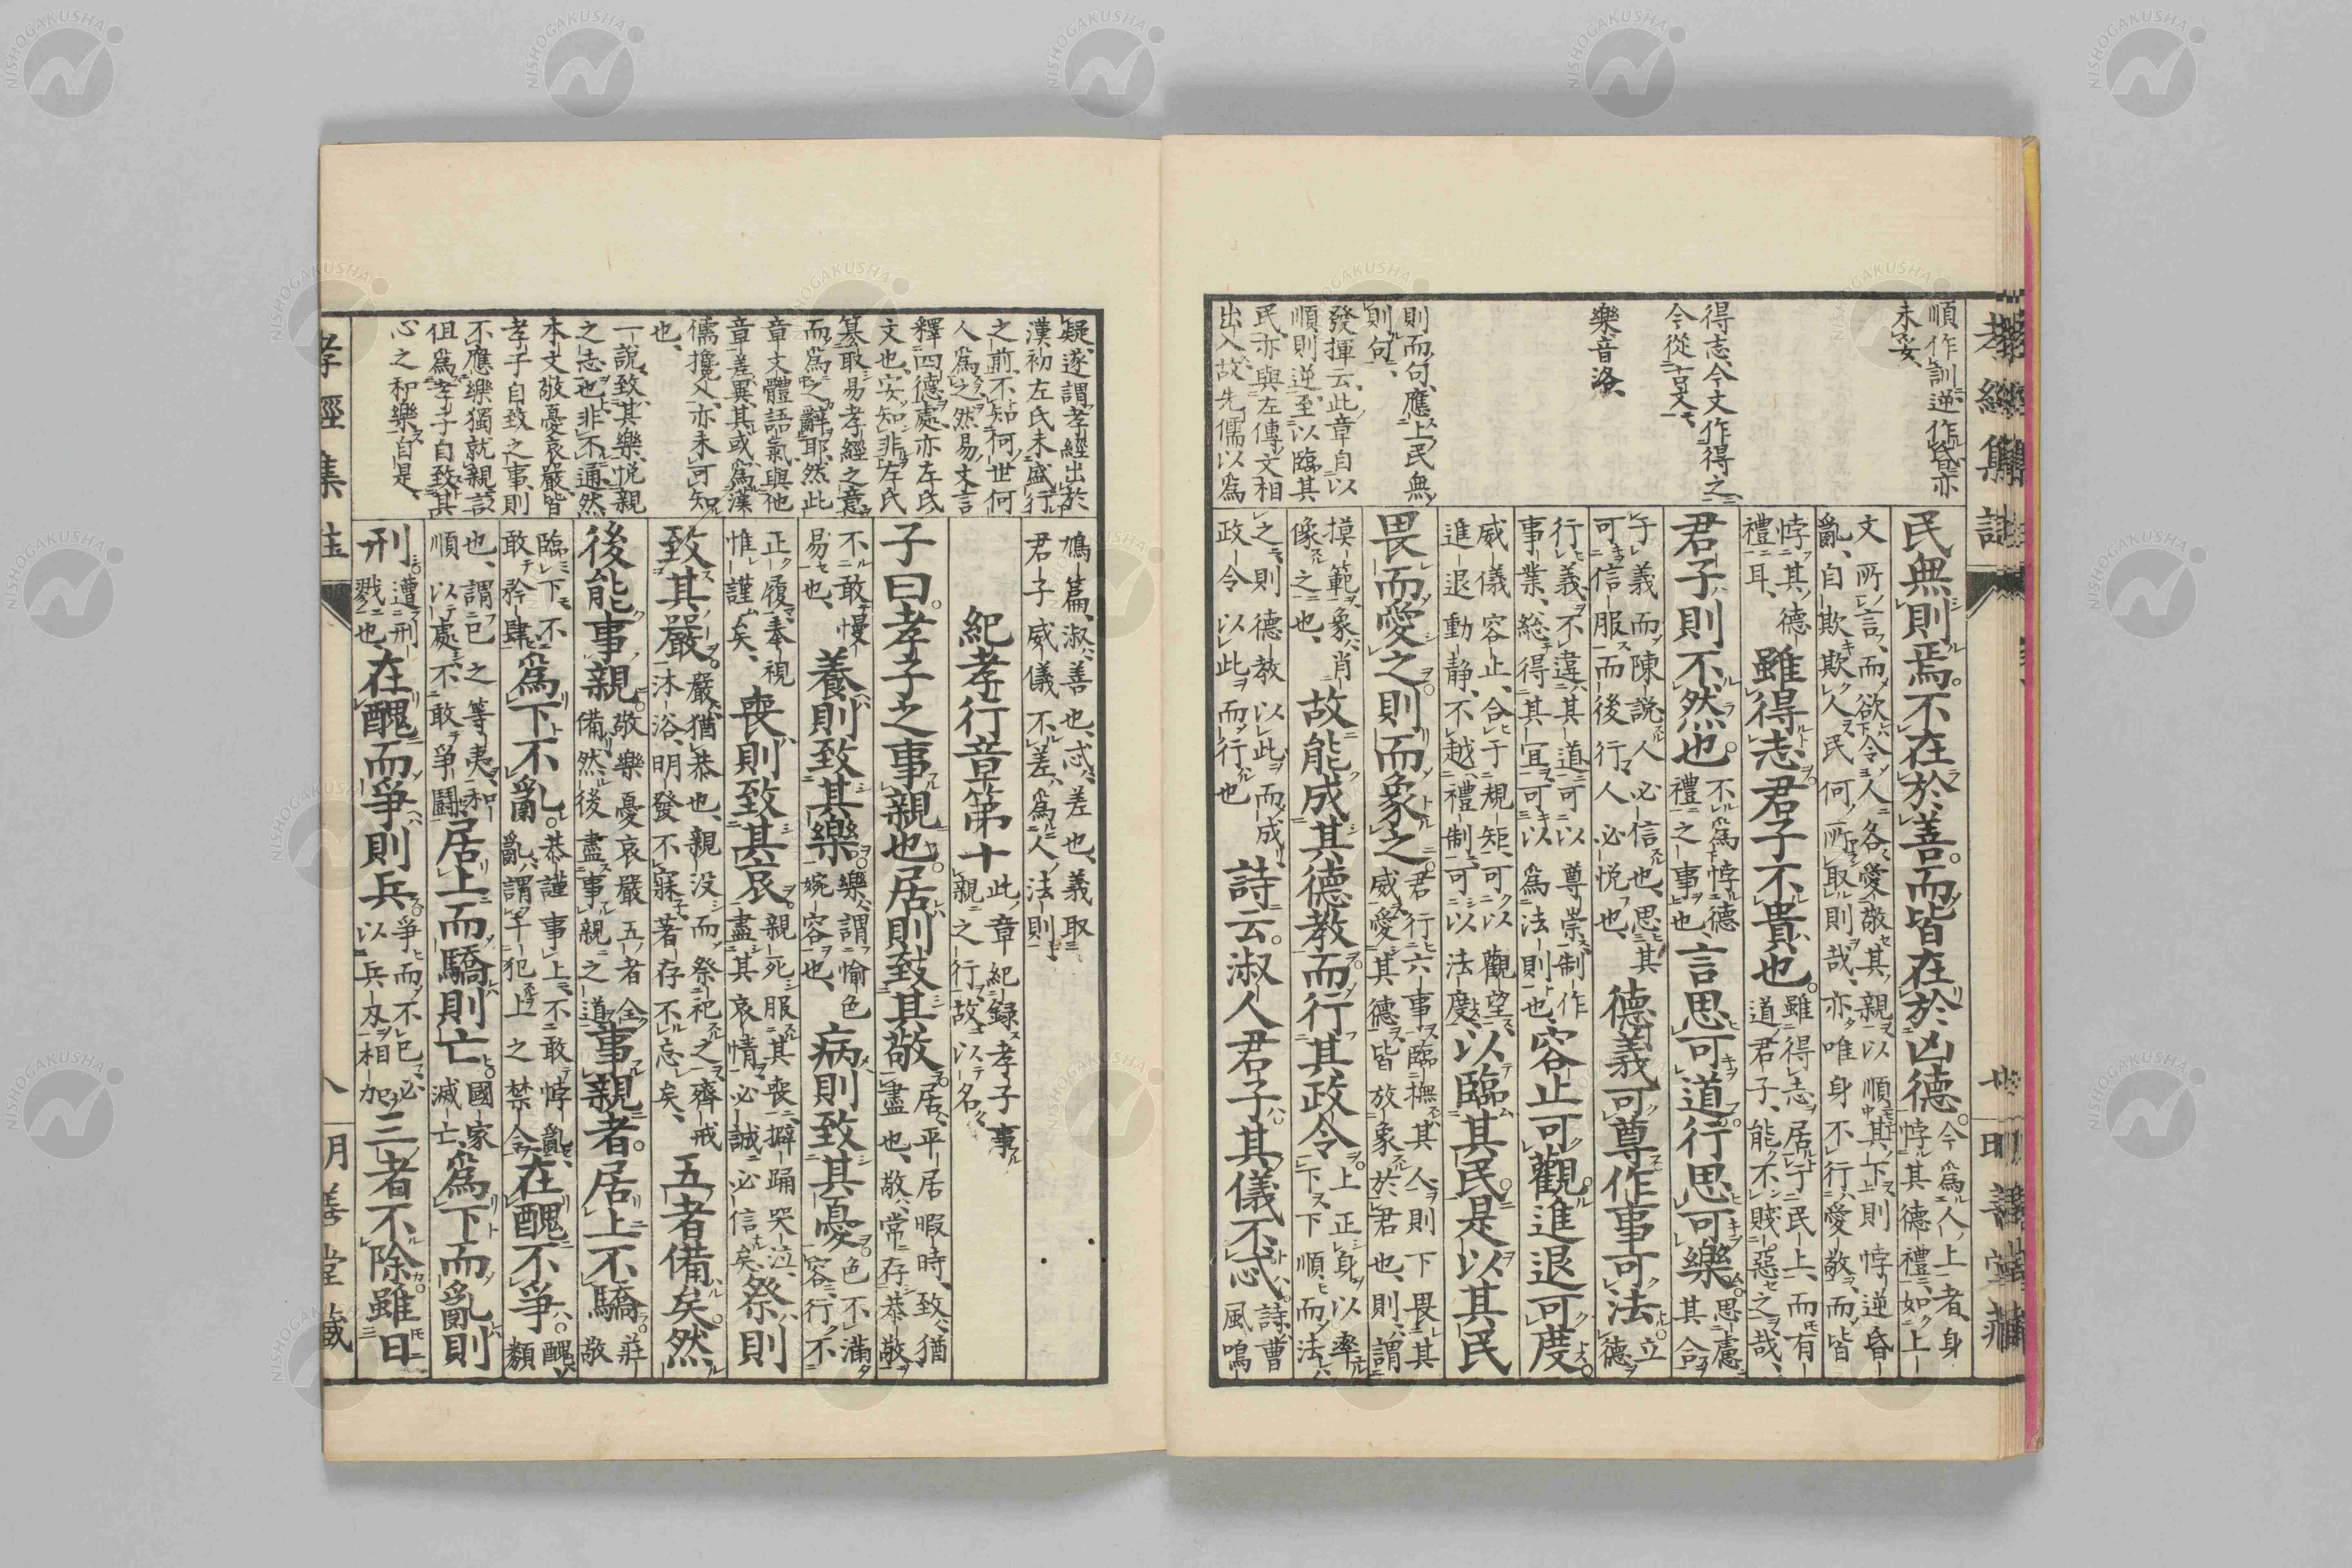 孝經集註
順作訓逆作昏亦
未妥、
得志今文作得之
今從古文、
樂音洛、
則而句應上民無
則句、
發揮云此章自以
順則逆至以臨其
民亦與左傳文相
出入故先儒以爲
民無則焉。不在於善。而皆在於凶德。今爲人上者、身悖其德禮、如上
文所言、而欲令人各愛敬其親、以順其下則悖逆昏亂、自欺欺人、民何所取則哉、亦唯身不行愛敬、而皆
悖其德禮耳、雖得志君子不貴也。雖得志居于民上、而有道君子、能不賤惡之哉、
君子則不然也。不爲悖德禮之事也、言思可道。行思可樂。思慮其合
于義而陳說、人必信也、思其可信服而後行、人必悅也、德義可尊作事可法。立德
行義、不違其道、可以尊崇、制作事業、総得其宜、可以爲法則也、容止可觀。進退可度。
威儀容止、合于規矩、可以觀望、進退動靜、不越禮制、可以法度、以臨其民。是以其民
畏而愛之。則而象之。君行六事、臨撫其人、則下畏其威愛其德、皆放象於君也、則、謂
摸範、象、肖像之也、故能成其德教。而行其政令。上正身以率下、下順而法
之、則德教以此而成、政令以此而行也、詩云。淑人君子。其儀不忒。詩、曹風鳴
明善堂藏
疑遂謂孝經出於
漢初左氏未盛行
之前不知何世何
人爲之然易文言
釋四德處亦左氏
文也安知非左氏
篡取易孝經之意
而爲之辭耶然此
章文體語氣與他
章差異其或爲漢
儒攙入亦未可知
也、
一說致其樂悅親
之志也非不通然
本文敬憂哀嚴皆
孝子自致之事則
不應樂獨就親說
但爲孝子自致其
心之和樂自是、
鳩篇、淑、善也、忒、差也、義取君子威儀、不差、爲人法則、
紀孝行章第十此章紀録孝子事親之行、故以名、
子曰。孝子之事親也。居則致其敬。居、平居暇時、致、猶盡也、敬、常存恭敬
不敢慢易也、養則致其樂。樂、謂愉色婉容也、病則致其憂。色不滿容、行不
正履、奉視惟謹矣、喪則致其哀。親死、服其喪、擗踊哭泣、盡其哀情、必誠必信矣、祭則
致其嚴。嚴、猶恭也、親没而祭祀之、齊戒沐浴、明發不寐、著存不忘矣、五者備矣。然
後能事親。敬樂憂哀嚴五者全備、然後盡事親之道、事親者。居上不驕。莊敬
臨下、不敢矜肆、爲下不亂。恭謹事上、不敢悖亂、亂、謂干犯上之禁令、在醜不爭。醜、類
也、謂己之等夷、和順以處、不敢爭鬪、居上而驕則亡。國家滅亡、爲下而亂則
刑。遭刑戮也、在醜而爭則兵。爭而不已、必以兵刄相加、三者不除。雖日
孝經集註
明善堂藏